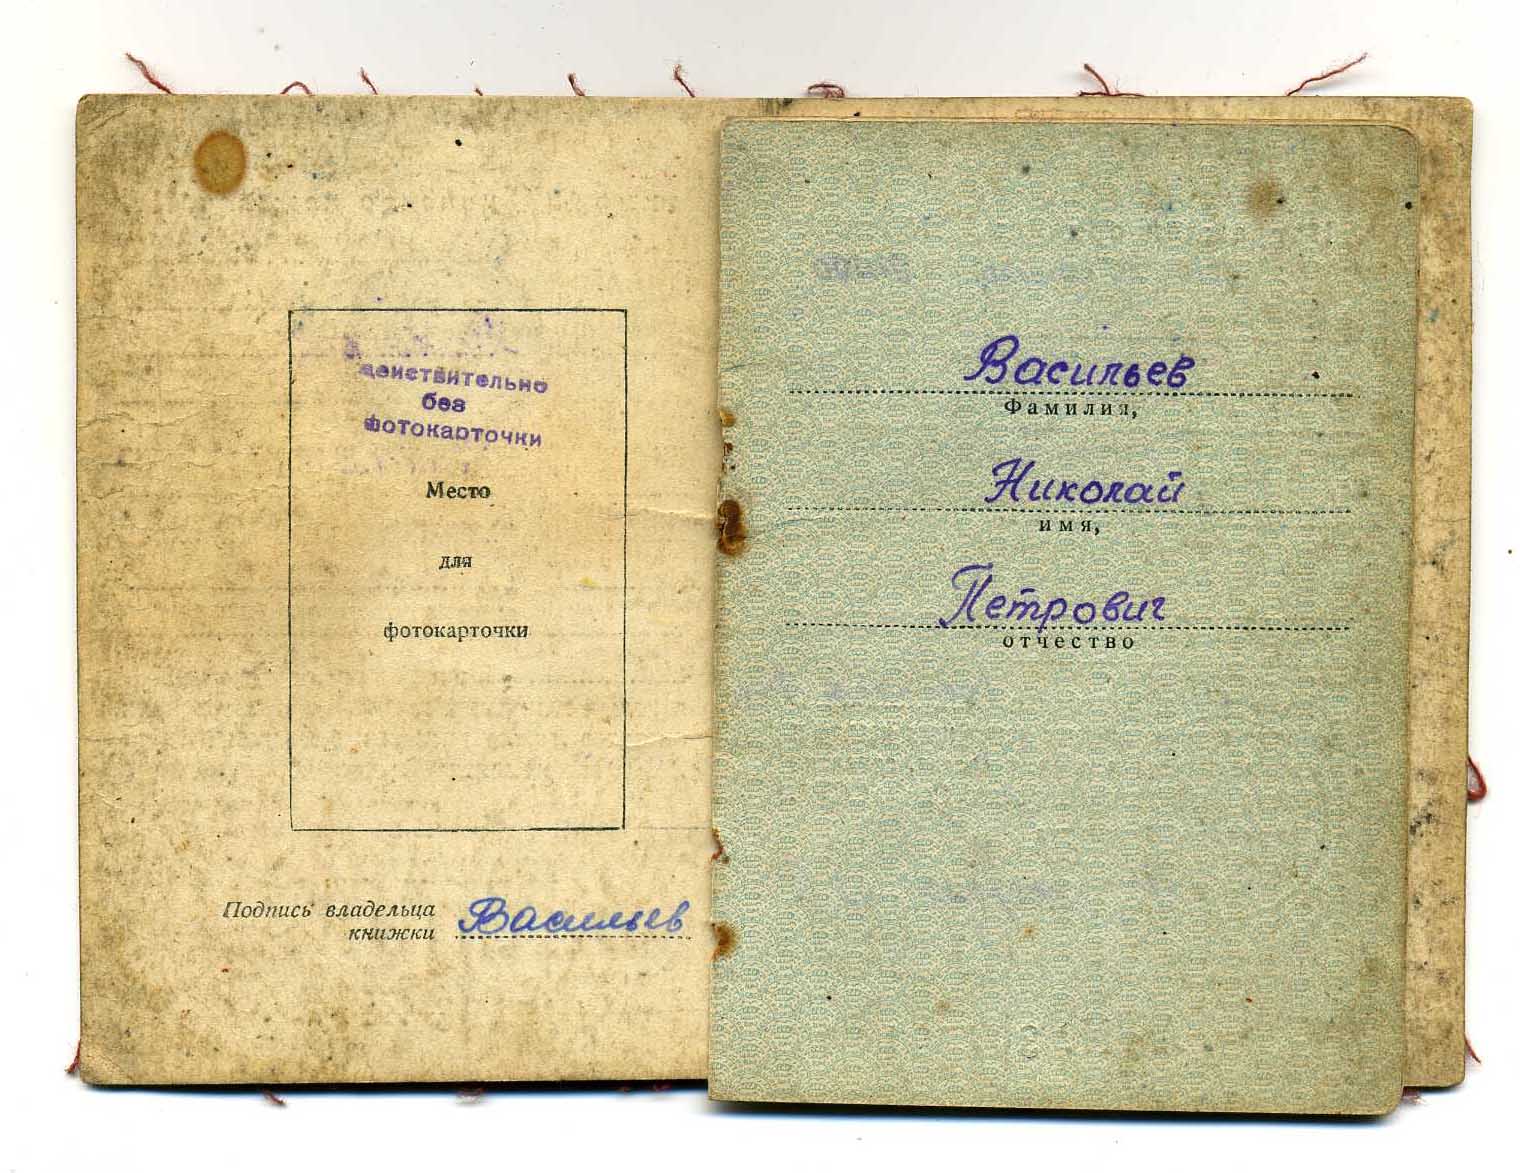 действительно
без
фотокарточки
Место
для
фотокарточки
Подпись владельца
книжки Васильев
Васильев
Фамилия,
Николай
имя,
Петрович
отчество